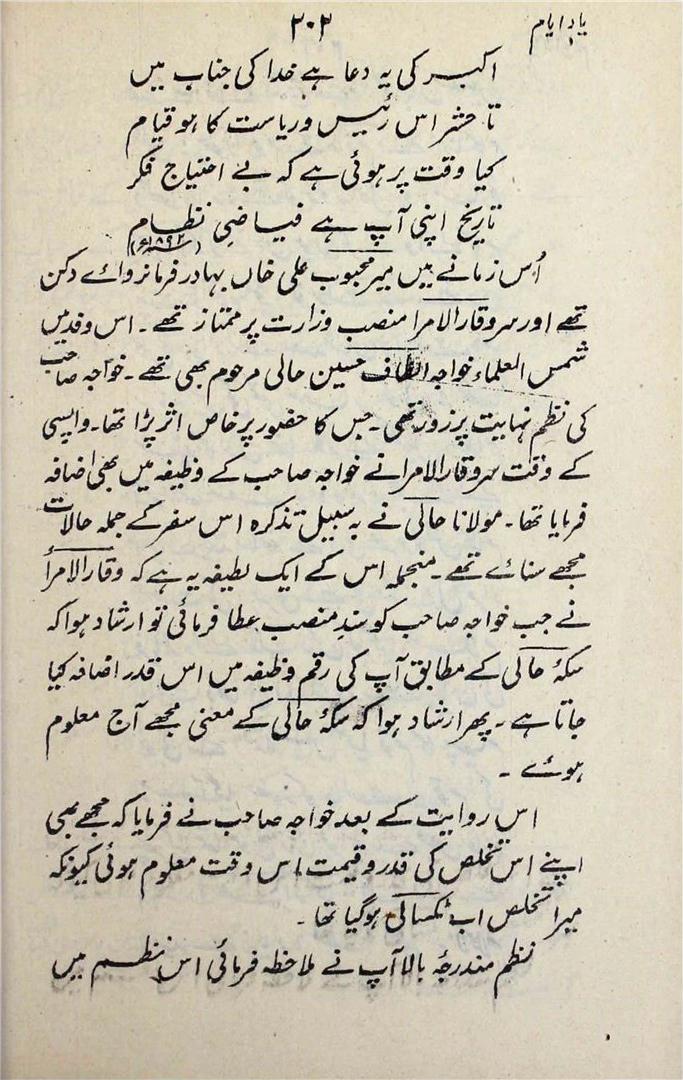 یادِ ایام
۲۰۳
اکبر کی یہ دعا ہے خدا کی جناب میں
تا حشر اس رئیس و ریاست کا ہو قیام
کیا وقت پر ہوئی ہے کہ بے احتیاج فکر
تاریخ اپنی آپ ہے فیاضیِ نظام
(۱۸۹۲ء)
اُس زمانے میں میر محبوب علی خاں بہادر فرمانرواے دکن
تھے اور سر وقار الامرا منصب وزارت پر ممتاز تھے ۔ اس وفد میں
شمس العلماء خواجہ الطاف حسین حالی مرحوم بھی تھے ۔ خواجہ صاحب
کی نظم نہایت پرزور تھی ۔ جس کا حضور پر خاص اثر پڑا تھا ۔ واپسی
کے وقت سر وقار الامرا نے خواجہ صاحب کے وظیفہ میں بھی اضافہ
فرمایا تھا ۔ مولانا حالی نے بہ سبیل تذکرہ اس سفر کے جملہ حالات
مجھے سناے تھے ۔ منجملہ اس کے ایک لطیفہ یہ ہے کہ وقار الامرأ
نے جب خواجہ صاحب کو سندِ منصب عطا فرمائی تو ارشاد ہوا کہ
سکۂ حالی کے مطابق آپ کی رقم وظیفہ میں اس قدر اضافہ کیا
جاتا ہے ۔ پھر ارشاد ہوا کہ سکۂ حالی کے معنی مجھے آج معلوم
ہوئے ۔
اس روایت کے بعد خواجہ صاحب نے فرمایا کہ مجھے بھی
اپنے اس تخلص کی قدر و قیمت اس وقت معلوم ہوئی کیونکہ
میرا تخلص اب ٹکسالی ہو گیا تھا ۔
نظم مندرجۂ بالا آپ نے ملاحظہ فرمائی اس نظم میں